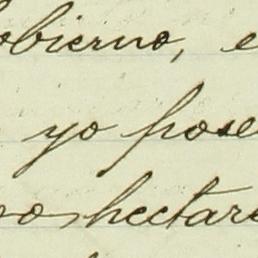 obierno, e
yo pose
oo hectare